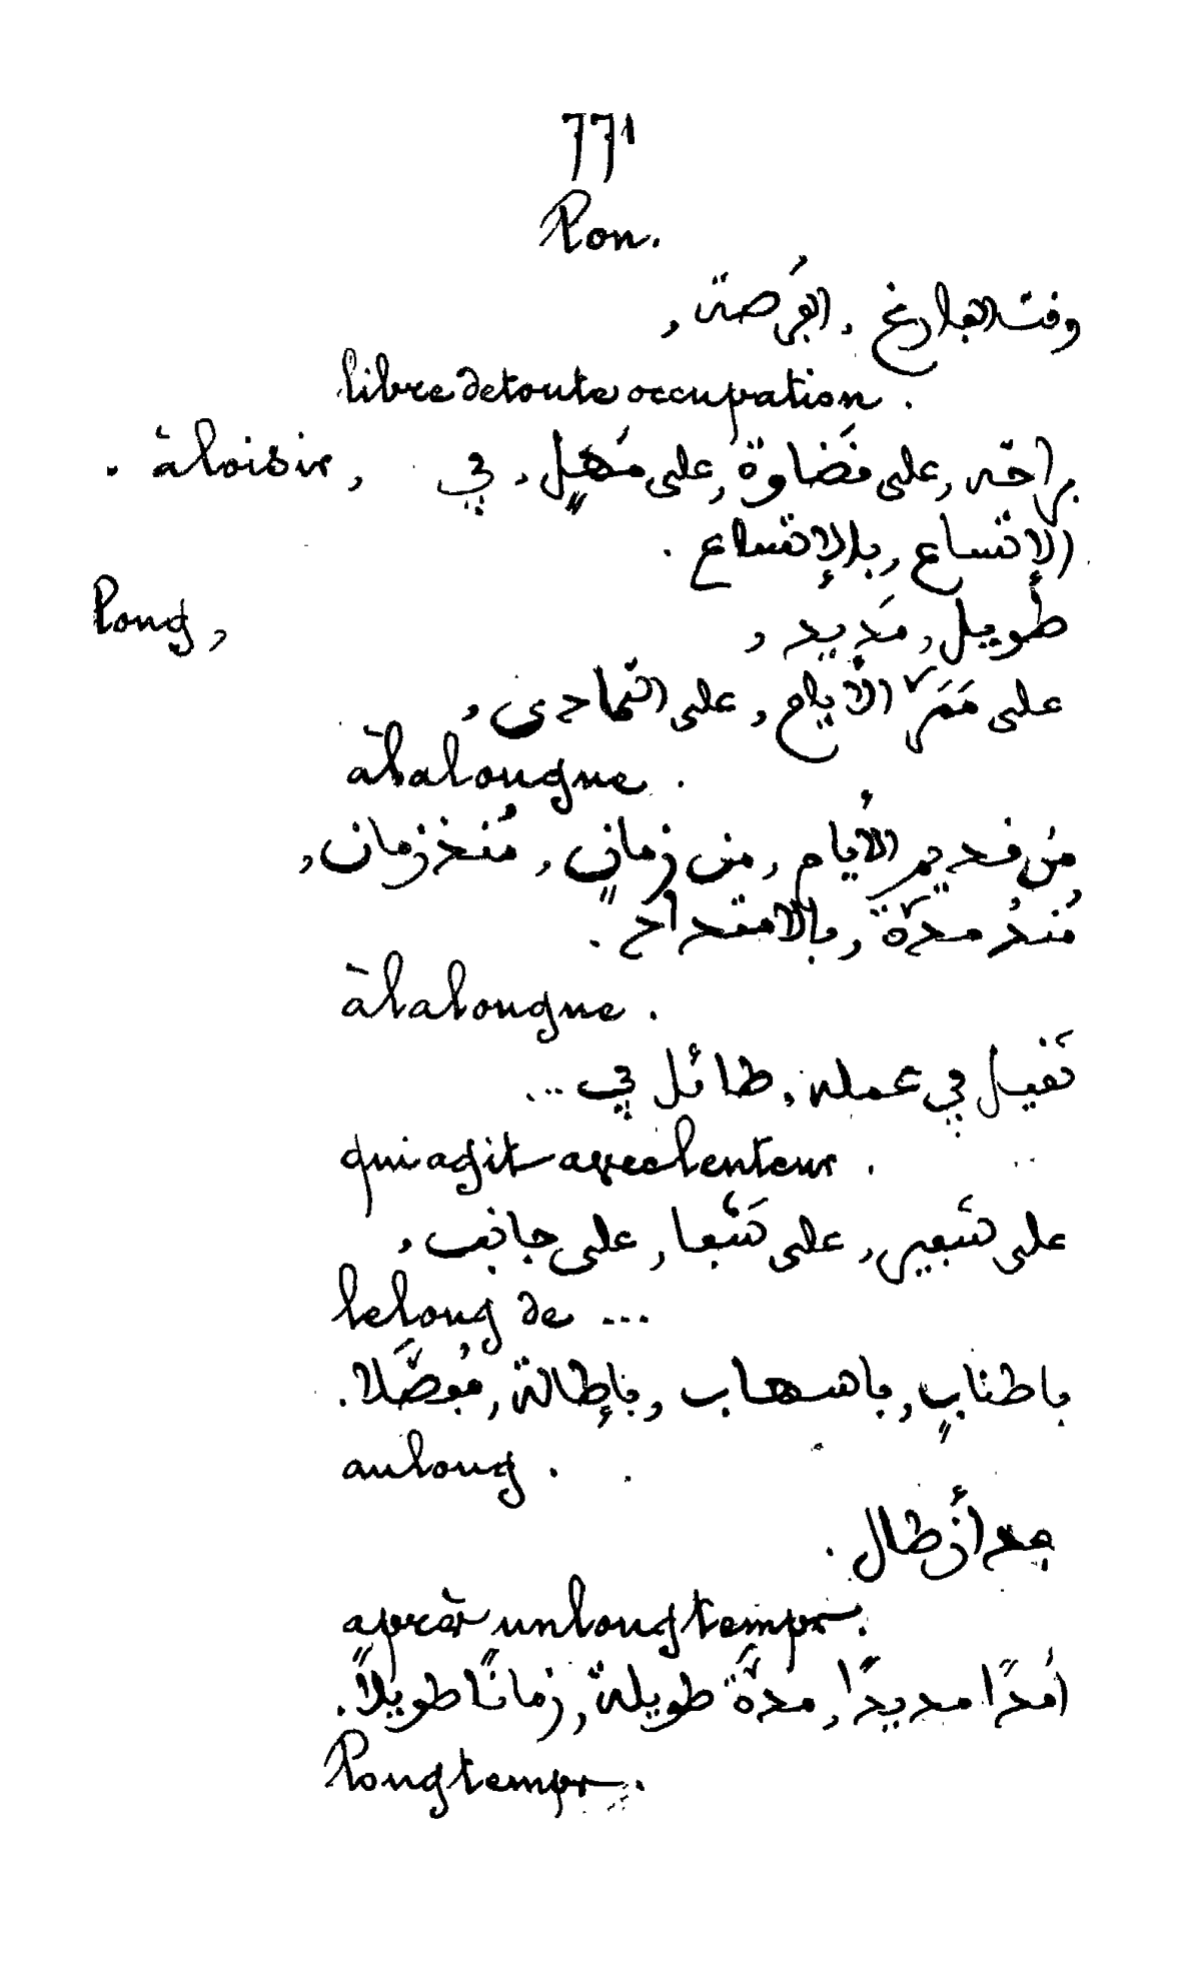 771
Lon.
وقت الفارغ , الفُرصة ,
libre de toute occupation .
براحة , على قَضاوة , على مَهَلٍ , في à loisir , .
الإتساع , بالإتساع .
طويل , مَديد , Long ,
على مَمَرّ الأيام , على التمادى ,
à la longue .
مِن قديم الأيام , من زمانٍ , مُنذ زمان ,
مُنذُ مدّة , بالامتداد .
à la longue .
ثَقيل في عمله , طائل في ...
qui agit avec lenteur .
على شَفير , على شَفا , على جانب ,
le long de ...
باطنابٍ , باسهاب , بإطالة , مُفصَّلا .
au long .
أن طال .
après un long temps .
أمدًا مديدًا , مدّةً طويلة , زمانًا طويلاً .
Longtemps .